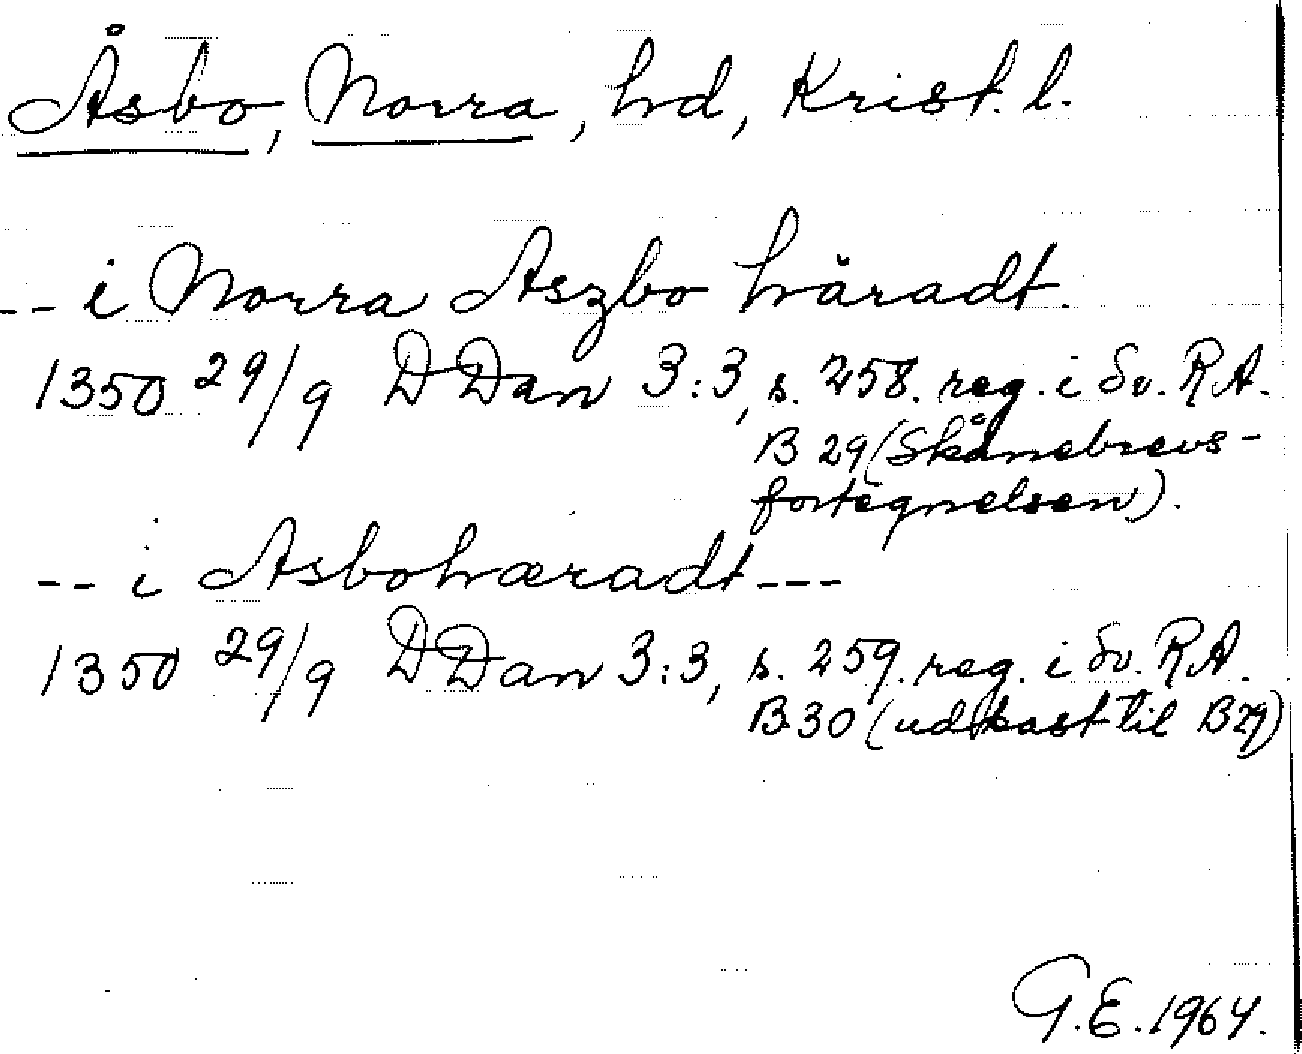 Åsbo, Norra, hd, Krist. l.
-- i Norra Aszbo häradt.
1350 29/9 DDan 3:3, s. 258. reg. i Sv. RA.
B 29 (Skånebrevs-
fortegnelsen).
-- i Asbohæradt ---
1350 29/9 DDan 3:3, s. 259. reg. i Sv. RA.
B 30 (udkast til B29)
G.E. 1964.